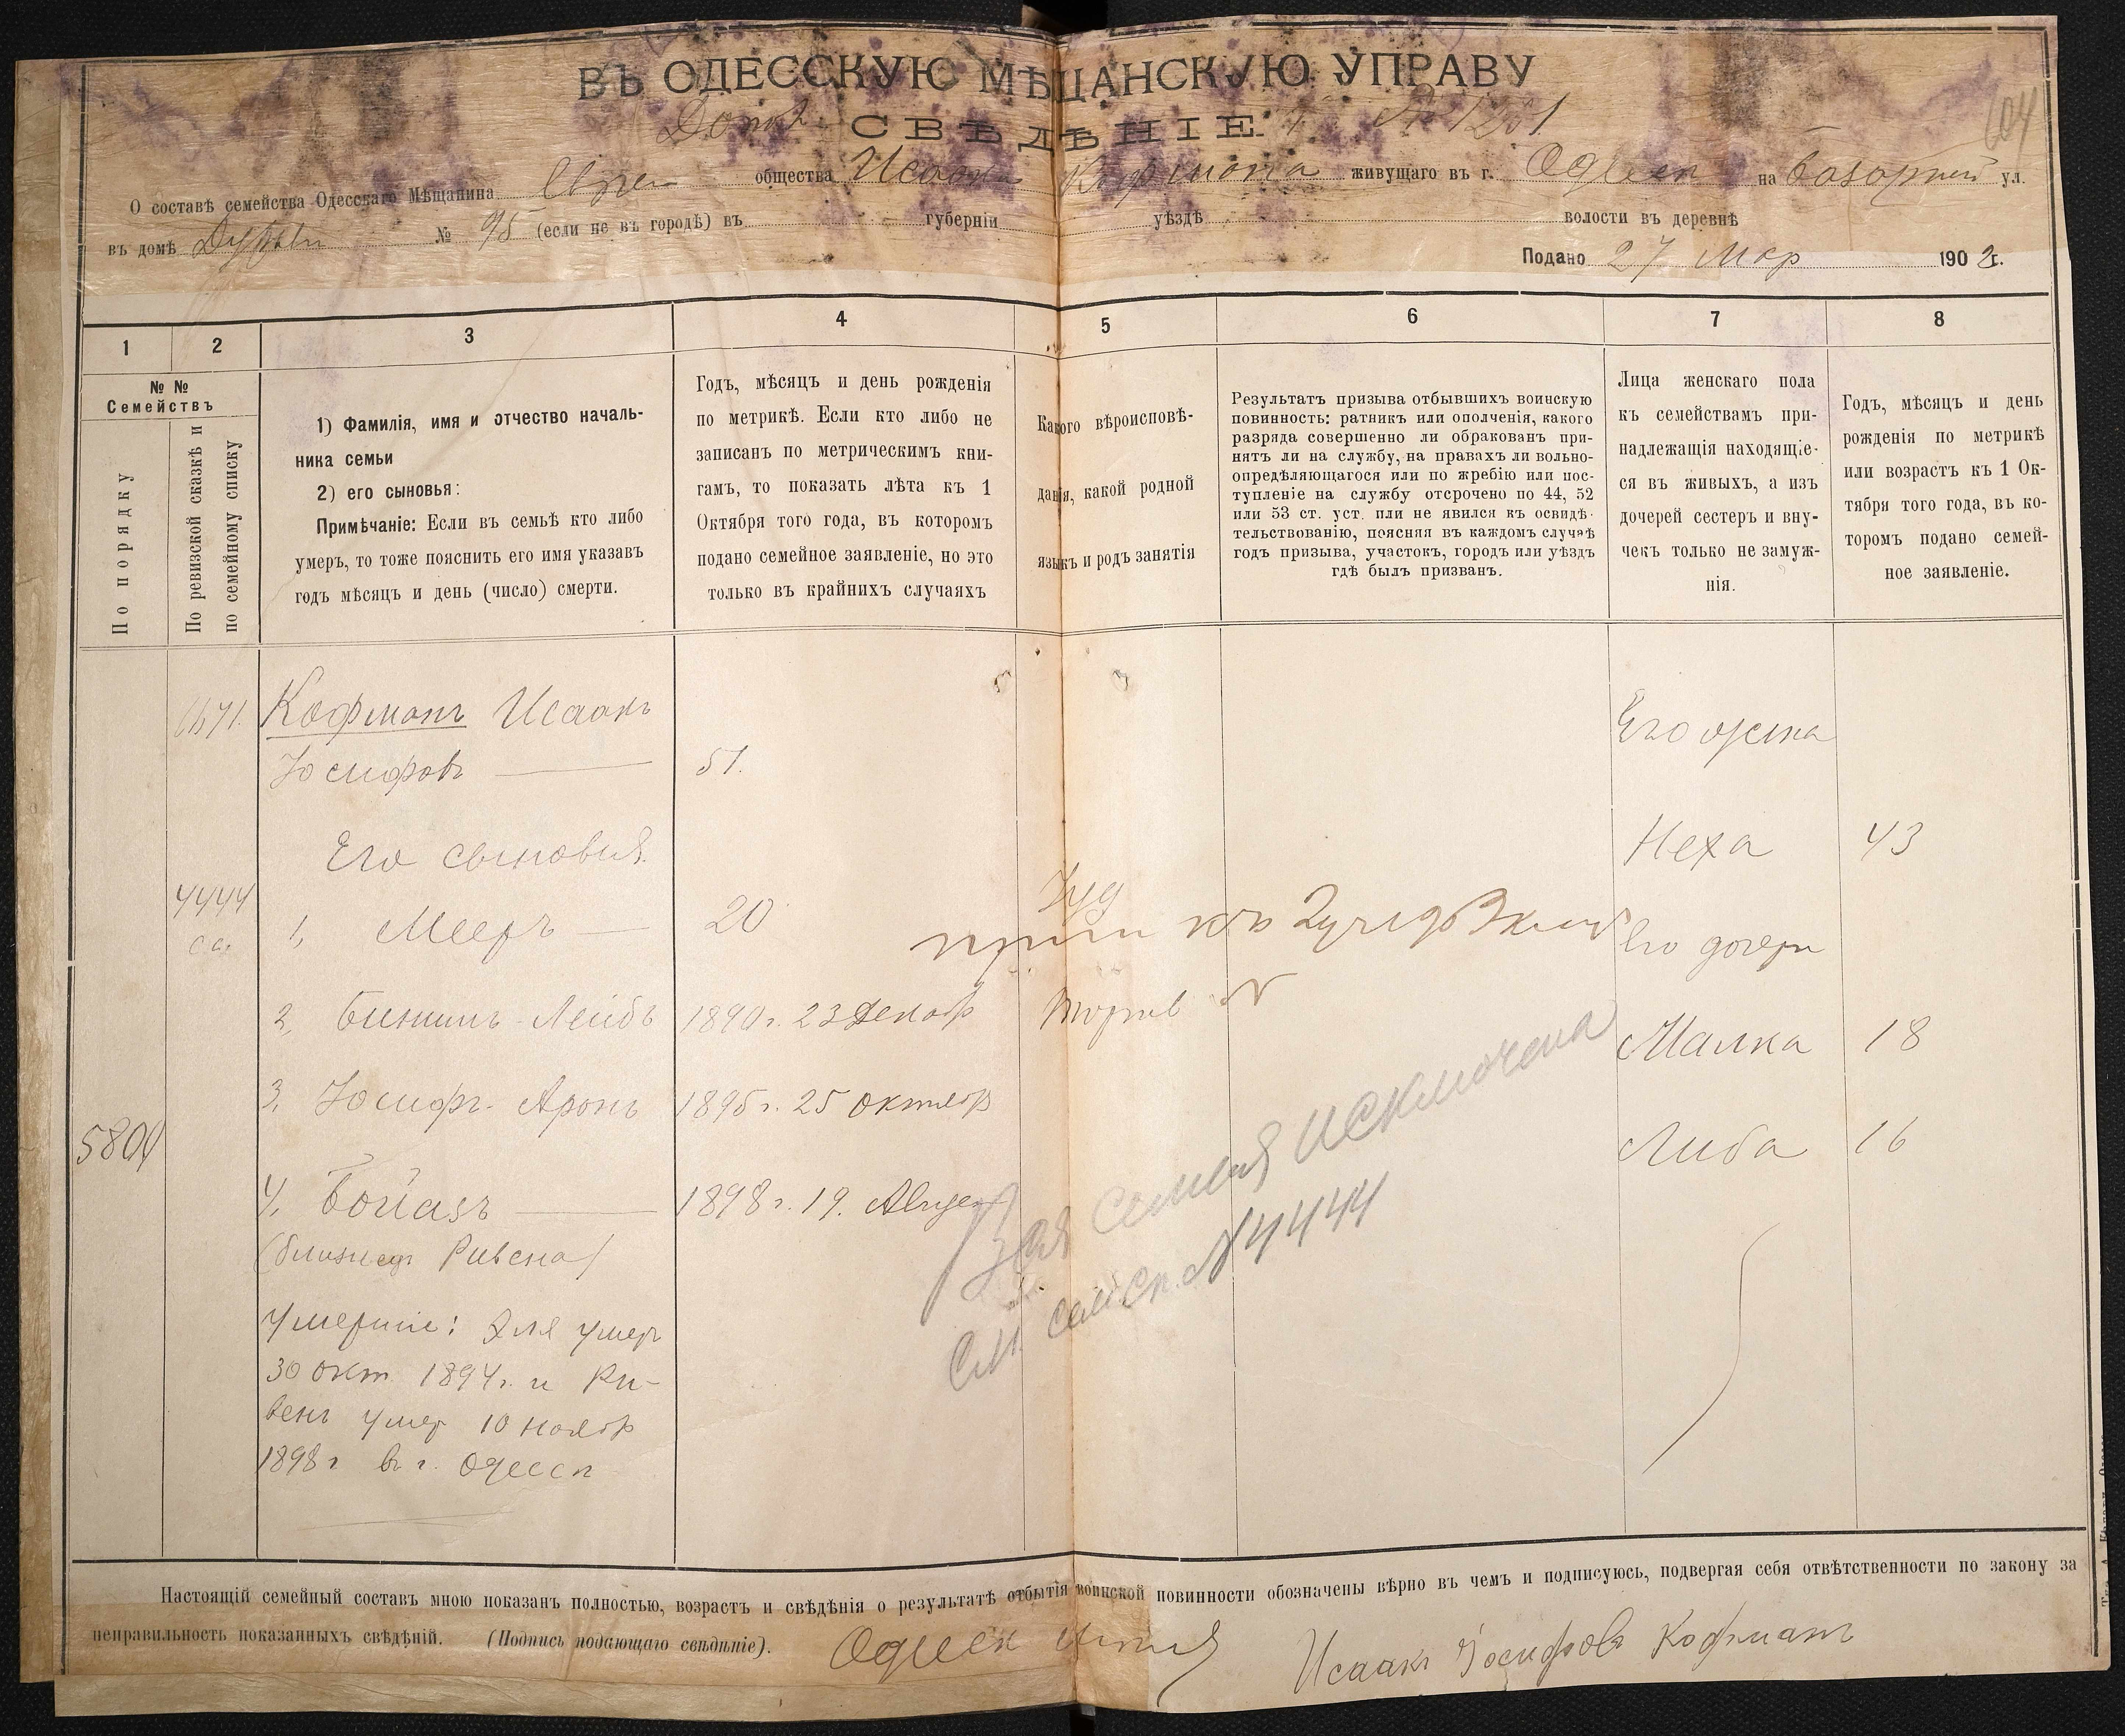 ВЪ ОДЕССКУЮ МѢЩАНСКУЮ УПРАВУ
СВѢДѢНІЕ № 1201
604
О составѣ семейства Одесскаго Мѣщанина общества Исаака Кофмана живущаго въ г. Одессѣ на Базарной ул.
въ домѣ № 95 (если не въ городѣ) въ губерніи уѣздѣ волости въ деревнѣ
Подано 27 Мар 1902 г.
1 2 3 4 5 6 7 8
№ №
Семействъ
По порядку
По ревизской сказкѣ и
по семейному списку
1) Фамилія, имя и отчество началь-
ника семьи
2) его сыновья:
Примѣчаніе: Если въ семьѣ кто либо
умеръ, то тоже пояснить его имя указавъ
годъ мѣсяцъ и день (число) смерти.
Годъ, мѣсяцъ и день рожденія
по метрикѣ. Если кто либо не
записанъ по метрическимъ кни-
гамъ, то показать лѣта къ 1
Октября того года, въ которомъ
подано семейное заявленіе, но это
только въ крайнихъ случаяхъ
Какого вѣроисповѣ-
данія, какой родной
языкъ и родъ занятія
Результатъ призыва отбывшихъ воинскую
повинность: ратникъ или ополченія, какого
разряда совершенно ли обракованъ при-
нятъ ли на службу, на правахъ ли вольно-
опредѣляющагося или по жребію или пос-
тупленіе на службу отсрочено по 44, 52
или 53 ст. уст. или не явился къ освидѣ-
тельствованію, поясняя въ каждомъ случаѣ
годъ призыва, участокъ, городъ или уѣздъ
гдѣ былъ призванъ.
Лица женскаго пола
къ семействамъ при-
надлежащія находящіе-
ся въ живыхъ, а изъ
дочерей сестеръ и вну-
чекъ только не замуж-
нія.
Годъ, мѣсяцъ и день
рожденія по метрикѣ
или возрастъ къ 1 Ок-
тября того года, въ ко-
торомъ подано семей-
ное заявленіе.
Кофманъ Исаакъ
Іосифовъ 51.
Его жена
Его сыновья
Неха 43
4444
сп.
1, Мееръ 20 Іуд
Его дочери
2, Биниминъ-Лейбъ 1890 г. 23 Декабр Торгов
Малка 18
3, Іосифъ-Аронъ 1895 г. 25 октябр
5804
Либа 16
4, Бойазъ 1898 г. 19. Август
(близнецъ Ривена)
Вся семья исключена
См. сем. сп. № 4444
Умершіе: Эля умеръ
30 окт. 1894 г. и Ри-
венъ умер 10 ноябр
1898 г въ г. Одессѣ
Настоящій семейный составъ мною показанъ полностью, возрастъ и свѣдѣнія о результатѣ отбытія воинской повинности обозначены вѣрно въ чемъ и подписуюсь, подвергая себя отвѣтственности по закону за
неправильность показанныхъ свѣдѣній. (Подпись подающаго свѣдѣніе). Исаакъ Іосифовъ Кофманъ